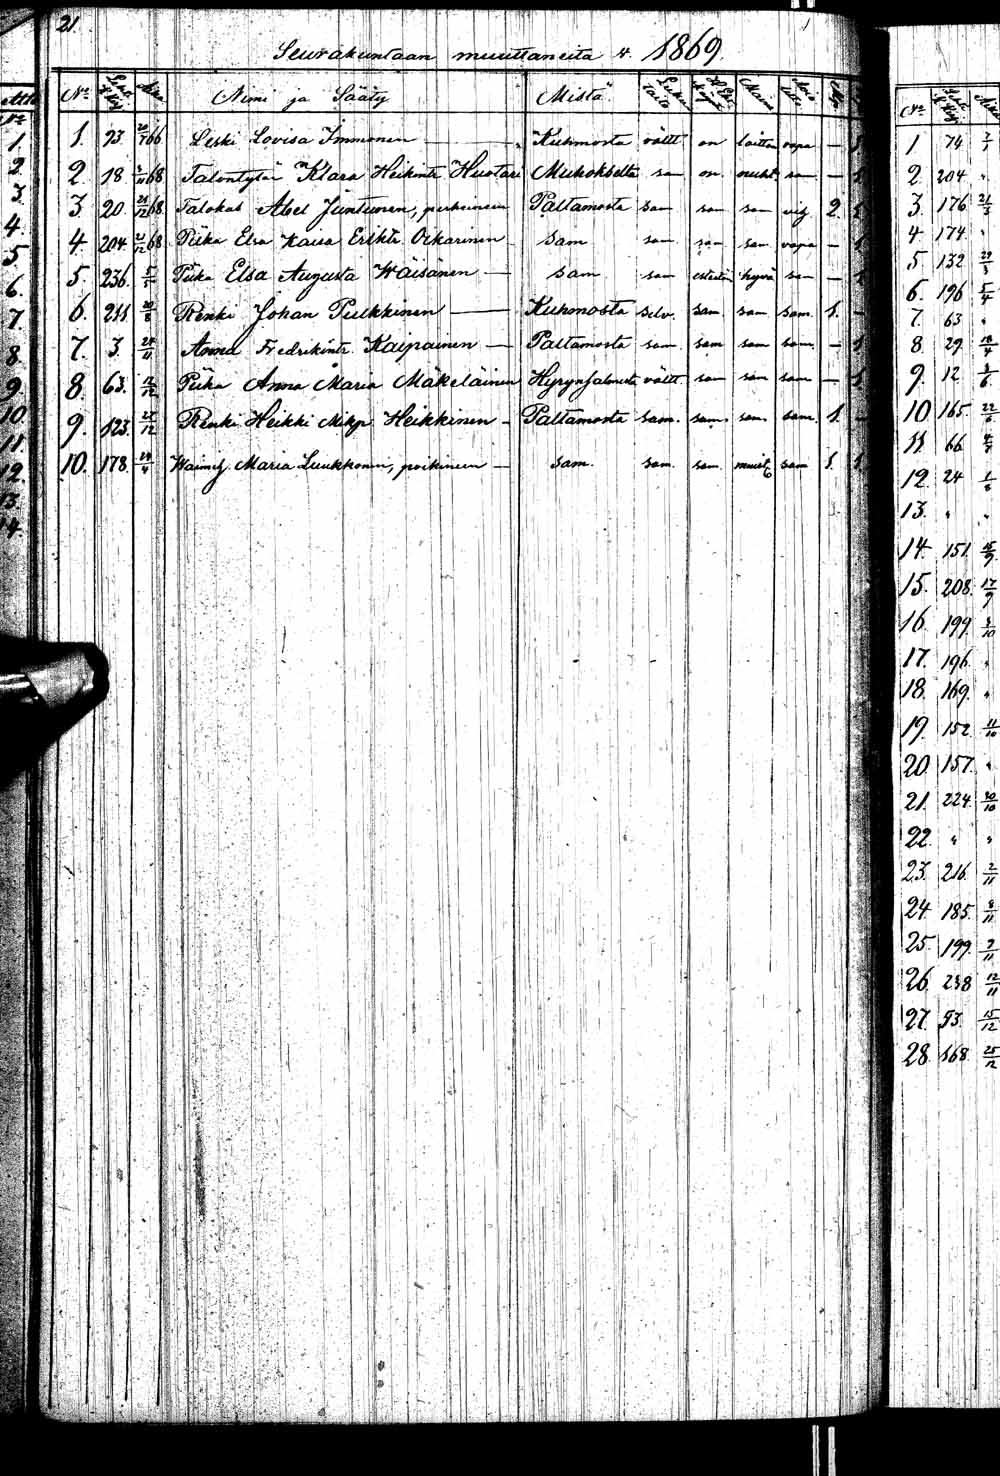 21.
Seurakuntaan muuttaneita v. 1869.
No Aika Nimi ja Sääty Mistä Luku taito Maine Avio
1. 93. 20/7 66 Leski Lovisa Immonen — Kuhmosta vältt on laitton vapa —
2. 18. 68 Talontytär Klara Heikintr Huotari Muhokselta sam on nuht. sam —
3. 20. 21/12 68 Talokas Abel Juntunen, perheineen Paltamosta sam sam sam vih 2.
4. 204. 21/12 68 Piika Elsa Kaisa Erikstr. Oikarinen sam sam sam sam vapa —
5. 236. 5/5 Piika Elsa Augusta Wäisänen — sam sam hyvä sam —
6. 211 20/8 Renki Johan Pulkkinen — Kuhmosta selv. sam. sam sam. 1. —
7. 3. 24/11 Anna Fredrikintr. Kaipainen — Paltamosta sam. sam. sam sam. — 1.
8. 63. 12/12 Piika Anna Maria Mäkeläinen Hyrynsalmesta vältt sam sam sam —
9. 123. 21/12 Renki Heikki Mikp. Heikkinen — Paltamosta sam. sam. sam. sam. 1. —
10. 178. Maria Luukkonen, poikineen — sam. sam. sam. sam 1. 1.
No Aika
1 74
2. 204 "
3. 176 21/3
4 174 "
5. 132 29/3
6. 196 5/4
7. 63 "
8. 29. 18/4
9. 12
10 165. 22/6
11 66
12. 24
13. " "
14 151. 15/9
15. 208. 17/9
16. 199.
17. 196. "
18. 169. "
19. 152. 11/10
20. 157. "
21. 224. 30/10
22. " "
23. 216. 2/11
24 185. 8/11
25. 199. 9/11
26. 238 12/11
27. 53. 15/12
28. 168. 25/12
1.
2.
3.
4.
5
6.
7.
8.
9.
10
11.
12.
13.
14.